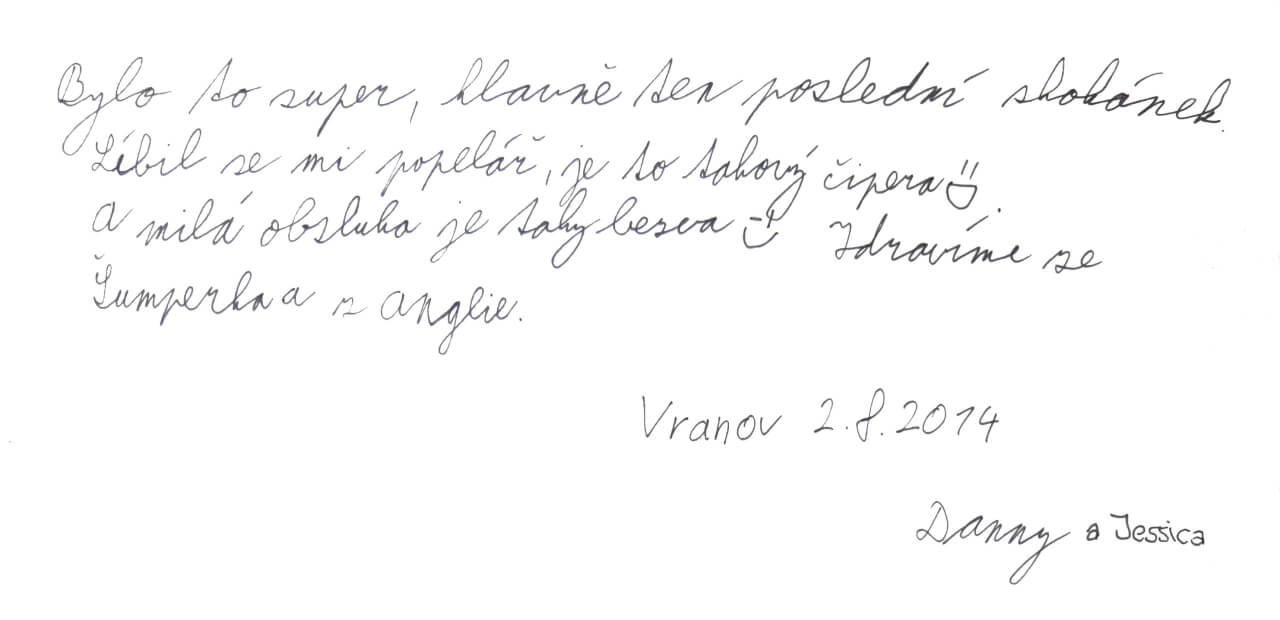 Bylo to super, hlavně ten poslední skokánek.
Líbil se mi popelář, je to takový čipera
a milá obsluha je taky bezva Zdravíme ze
Šumperka a z anglie.
Vranov 2.8.2014
Danny a Jessica